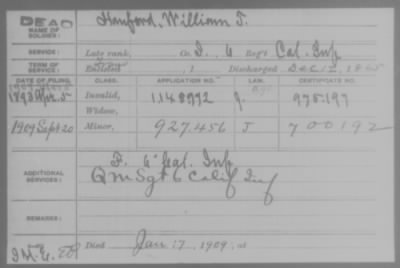 DEAD
NAME OF SOLDIER: Hanford, William T.
SERVICE: Late rank, Co. I, 6 Reg't Cal. Inf.
TERM OF SERVICE: Enlisted , 1 Discharged Dec 12, 1865
DATE OF FILING. CLASS. APPLICATION NO. LAW. CERTIFICATE NO.
Invalid, 1148992 975.197
Widow,
1909 Sept 20 Minor, 927.456 J 700192
ADDITIONAL SERVICES: F. 6" Cal. Inf.
Q M Sgt 6 Calif Inf
REMARKS:
Died Jan. 17, 1909, at